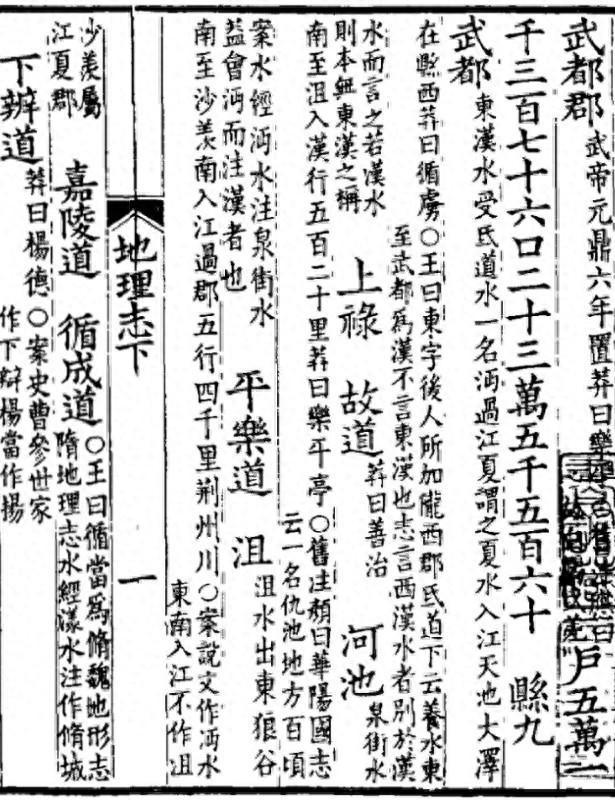 武都郡 武帝元鼎六年置莽曰樂 戶五萬一
千三百七十六口二十三萬五千五百六十 縣九
武都 東漢水受氐道水一名沔過江夏謂之夏水入江天池大澤
在縣西莽曰循虜○王曰東字後人所加隴西郡氐道下云養水東
至武都為漢不言東漢也志言西漢水者別於漢
水而言之若漢水
則本無東漢之稱 上祿 故道 莽曰善治 河池 泉街水
南至沮入漢行五百二十里莽曰樂平亭○舊注顏曰華陽國志
云一名仇池地方百頃
案水經沔水注泉街水
蓋會沔而注漢者也 平樂道 沮 沮水出東狼谷
南至沙羨南入江過郡五行四千里荊州川○案說文作沔水
東南入江不作沮
地理志下 一
沙羨屬
江夏郡 嘉陵道 循成道 ○王曰循當為脩魏地形志
隋地理志水經漾水注作脩城
下辨道 莽曰楊德○案史曹參世家
作下辯楊當作揚